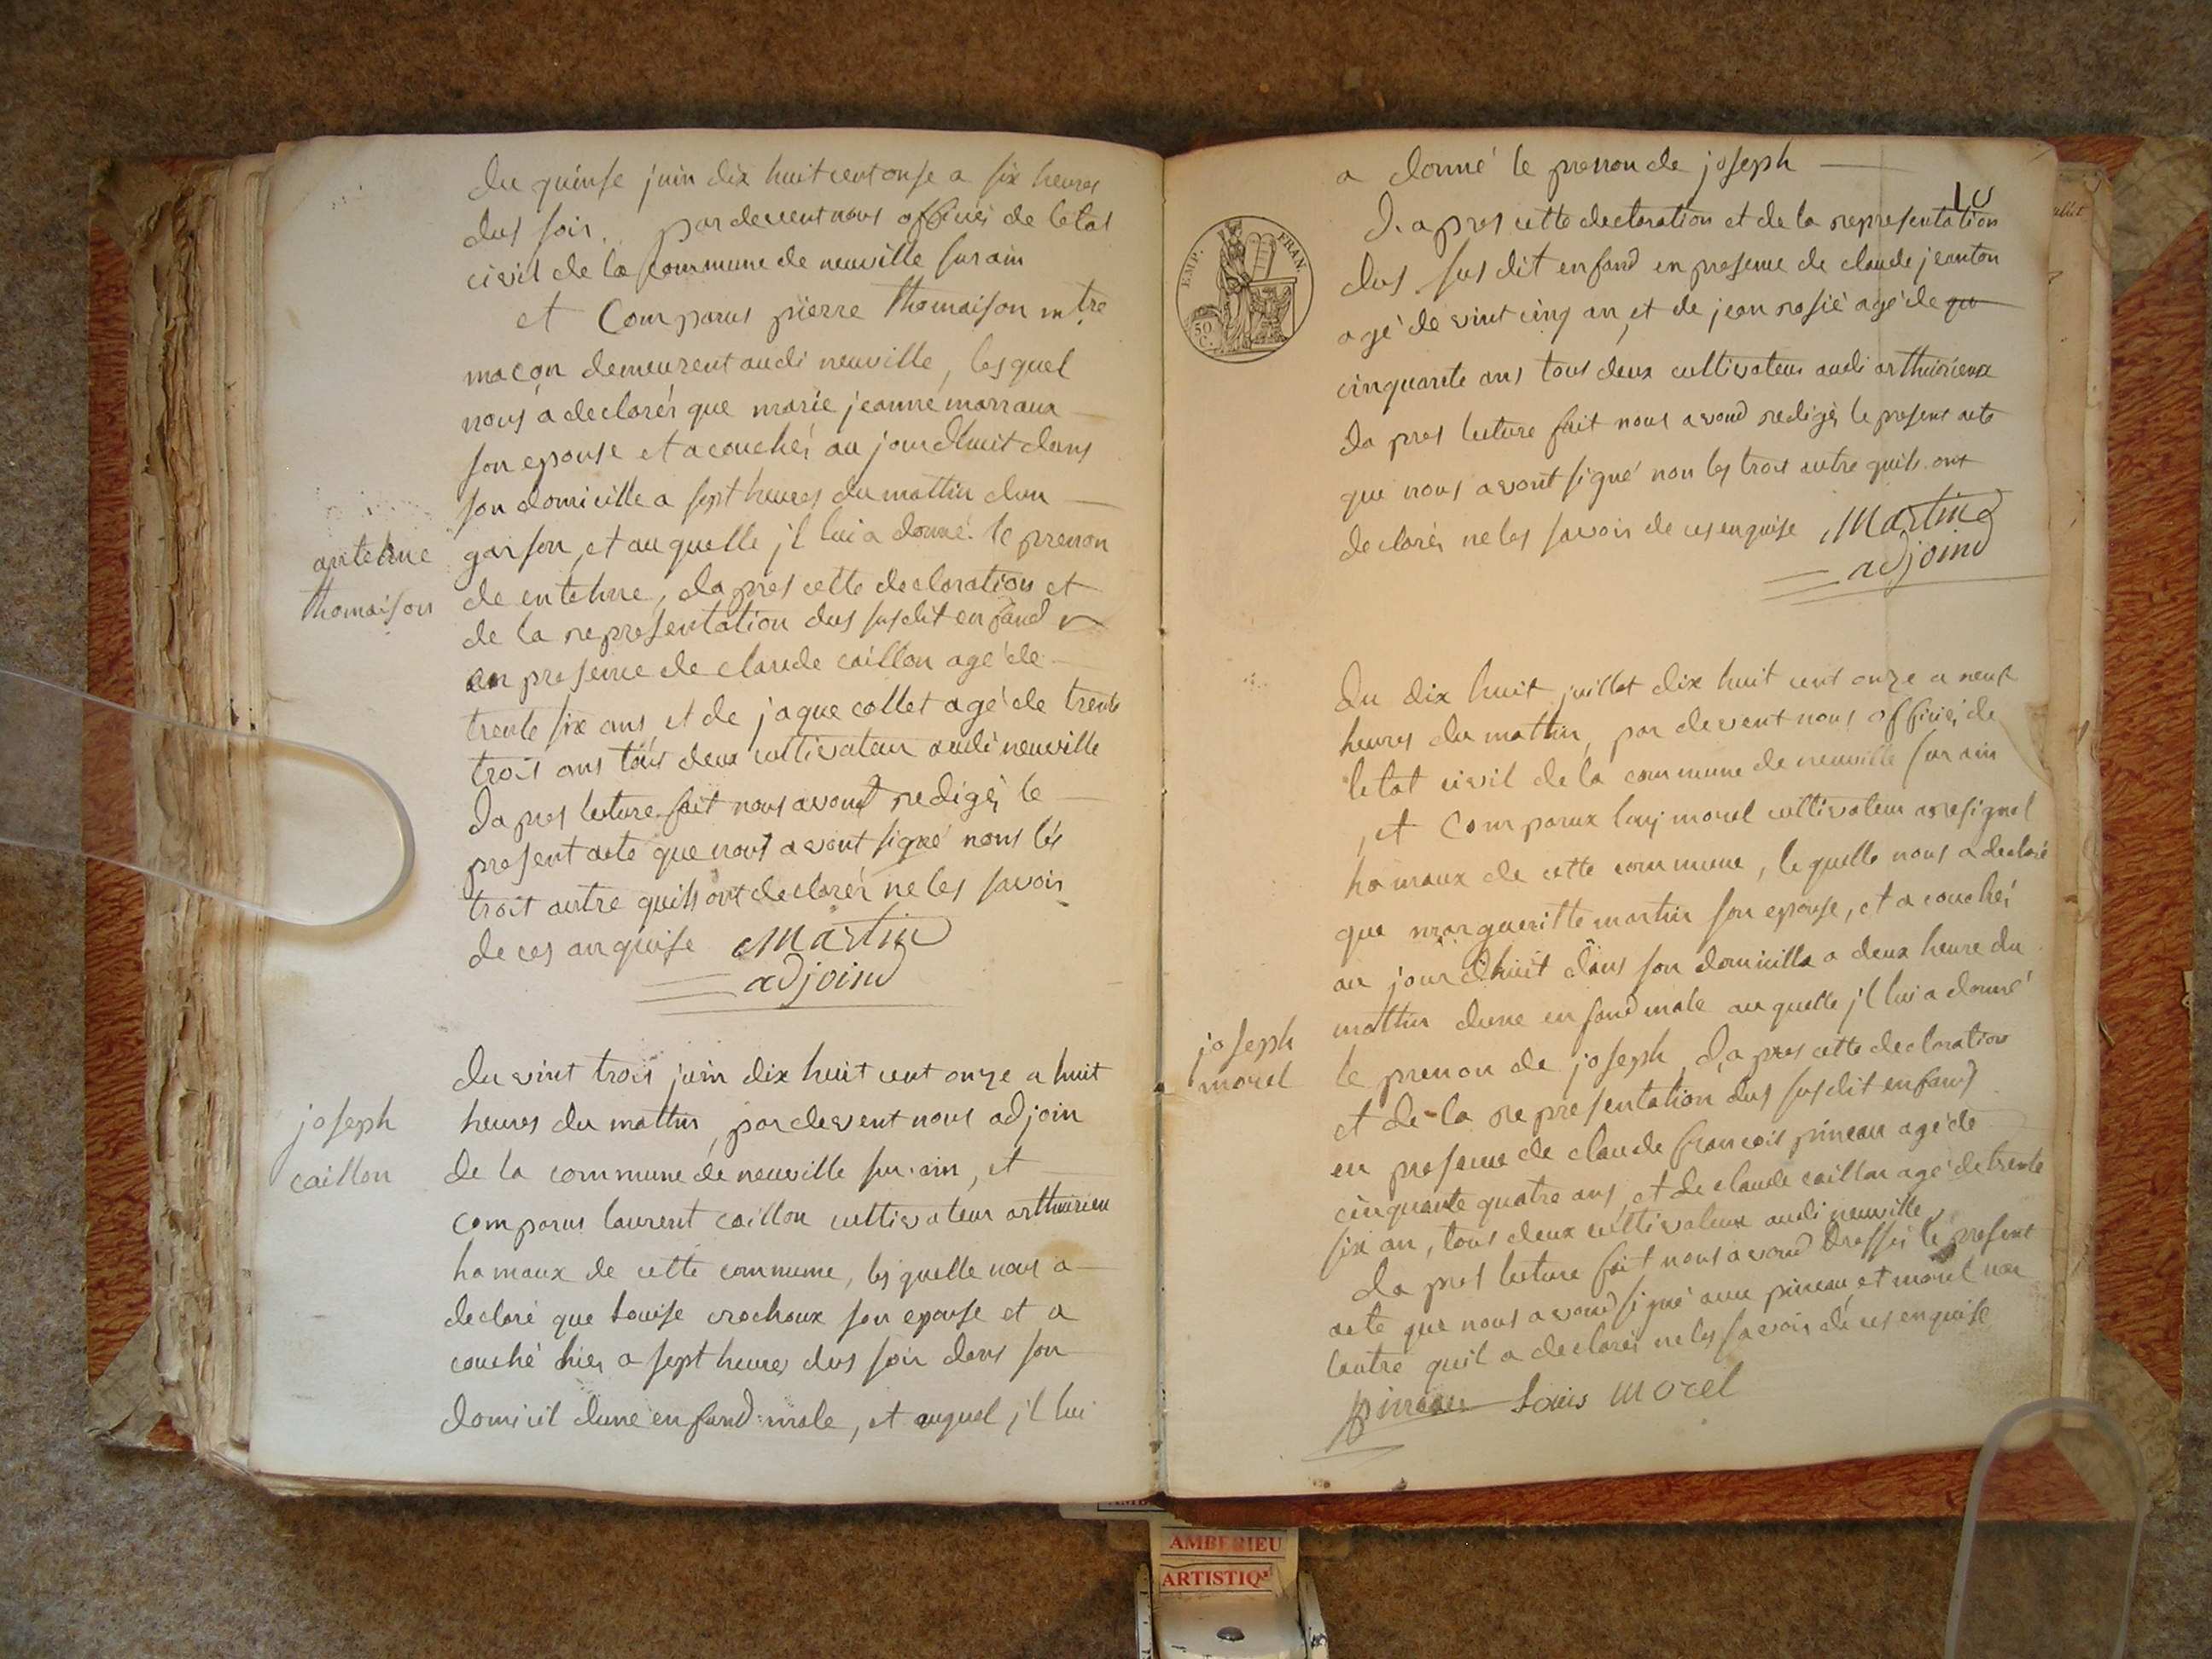 du quinse juin dix huit cent onse a six heures
dus soir. par devent nous officiés de letat
civil de la commune de neuville sur ain
et Comparus pierre thomaison mtre
maçon demeurent audi neuville, lesquel
nous a declarér que marie jeanne marraux
son epouse et acouchér au jourdhuit dans
son domicille a sept heures du mattin dun
garson, et au quelle jl lui a donné le prenon
de entehne, dapres cette declaration et
de la representation dus susdit enfand
en presence de claude caillon agé de
trente six ans, et de jaque collet agé de trente
trois ans tous deux cultivateur audi neuville
Dapres lecture fait nous avont redigér le
present acte que nous avont signé nons lés
trois autre quils ont declarér ne les savoir
de ces anquise Martin
adjoind
antehne
thomaison
du vint trois juin dix huit cent onze a huit
heures du mattin, par devent nous adjoin
de la commune de neuville sur ain, et
comparus laurent caillon cultivateur arthurieu
hamaux de cette commune, les quelle nous a
declaré que Louise crochoux son epouse et a
couché hier a sept heures dus soir dans son
domicil dune enfand male, et auquel jl lui
joseph
caillon
a donné le prenon de joseph
10
D'apres cette declaration et de la representation
dus susdit enfand en presence de claude jeanton
agé de vint cinq an, et de jean rosié agé de
cinquante ans tous deux cultivateur audi arthurieux
da pres lecture fait nous avond redigér le present acte
que nous avont signé non les trois autre quils ont
declarér ne les savoir de ces enquise Martin
adjoind
EMP. FRAN.
50
C.
Du dix huit juillet dix huit cent onze a neuf
heures du mattin, par devent nous officiér de
letat civil de la commune de neuville sur ain
, et Comparux louj morel cultivateur aresignel
hamaux de cette commune, le quelle nous a declaré
que margueritte martin son epouse, et a couchér
au jour dhuit dans son domicille a deux heure du
mattin dune enfand male au quelle jl lui a donné
le prenon de joseph, d'a pres cette declaration
et de la representation dus susdit enfand
en presence de claude francois pineau agé de
cinquante quatre ans, et de claude caillon agé de trente
six an, tous deux cultivateur audi neuville,
da pres lecture fait nous avond dressér le present
acte que nous avond signé avec pineau et morel non
lautre quil a declarér ne les savoir dé ces enquise
joseph
morel
pineau Louis Morel
AMBERIEU
ARTISTIQ